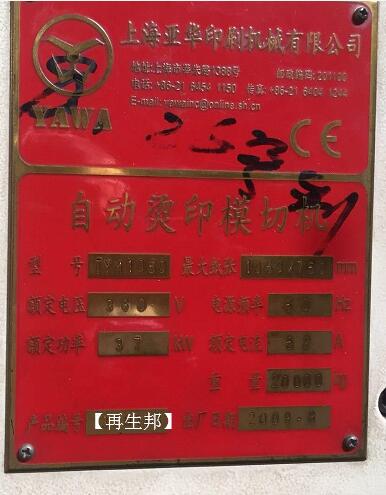 上海亚华印刷机械有限公司
地址:上海市莘光路1388号 邮政编码:201100
电话:+86-21 6454 1150 传真:+86-21 6404 1244
E-mail: yawainc@online.sh.cn
YAWA
CE
自动烫印模切机
型号 最大纸张 mm
额定电压 380 V 电源频率 50 Hz
额定功率 37 kW 额定电流 A
重量 20000 kg
产品编号 【再生邦】 出厂日期 2009-8